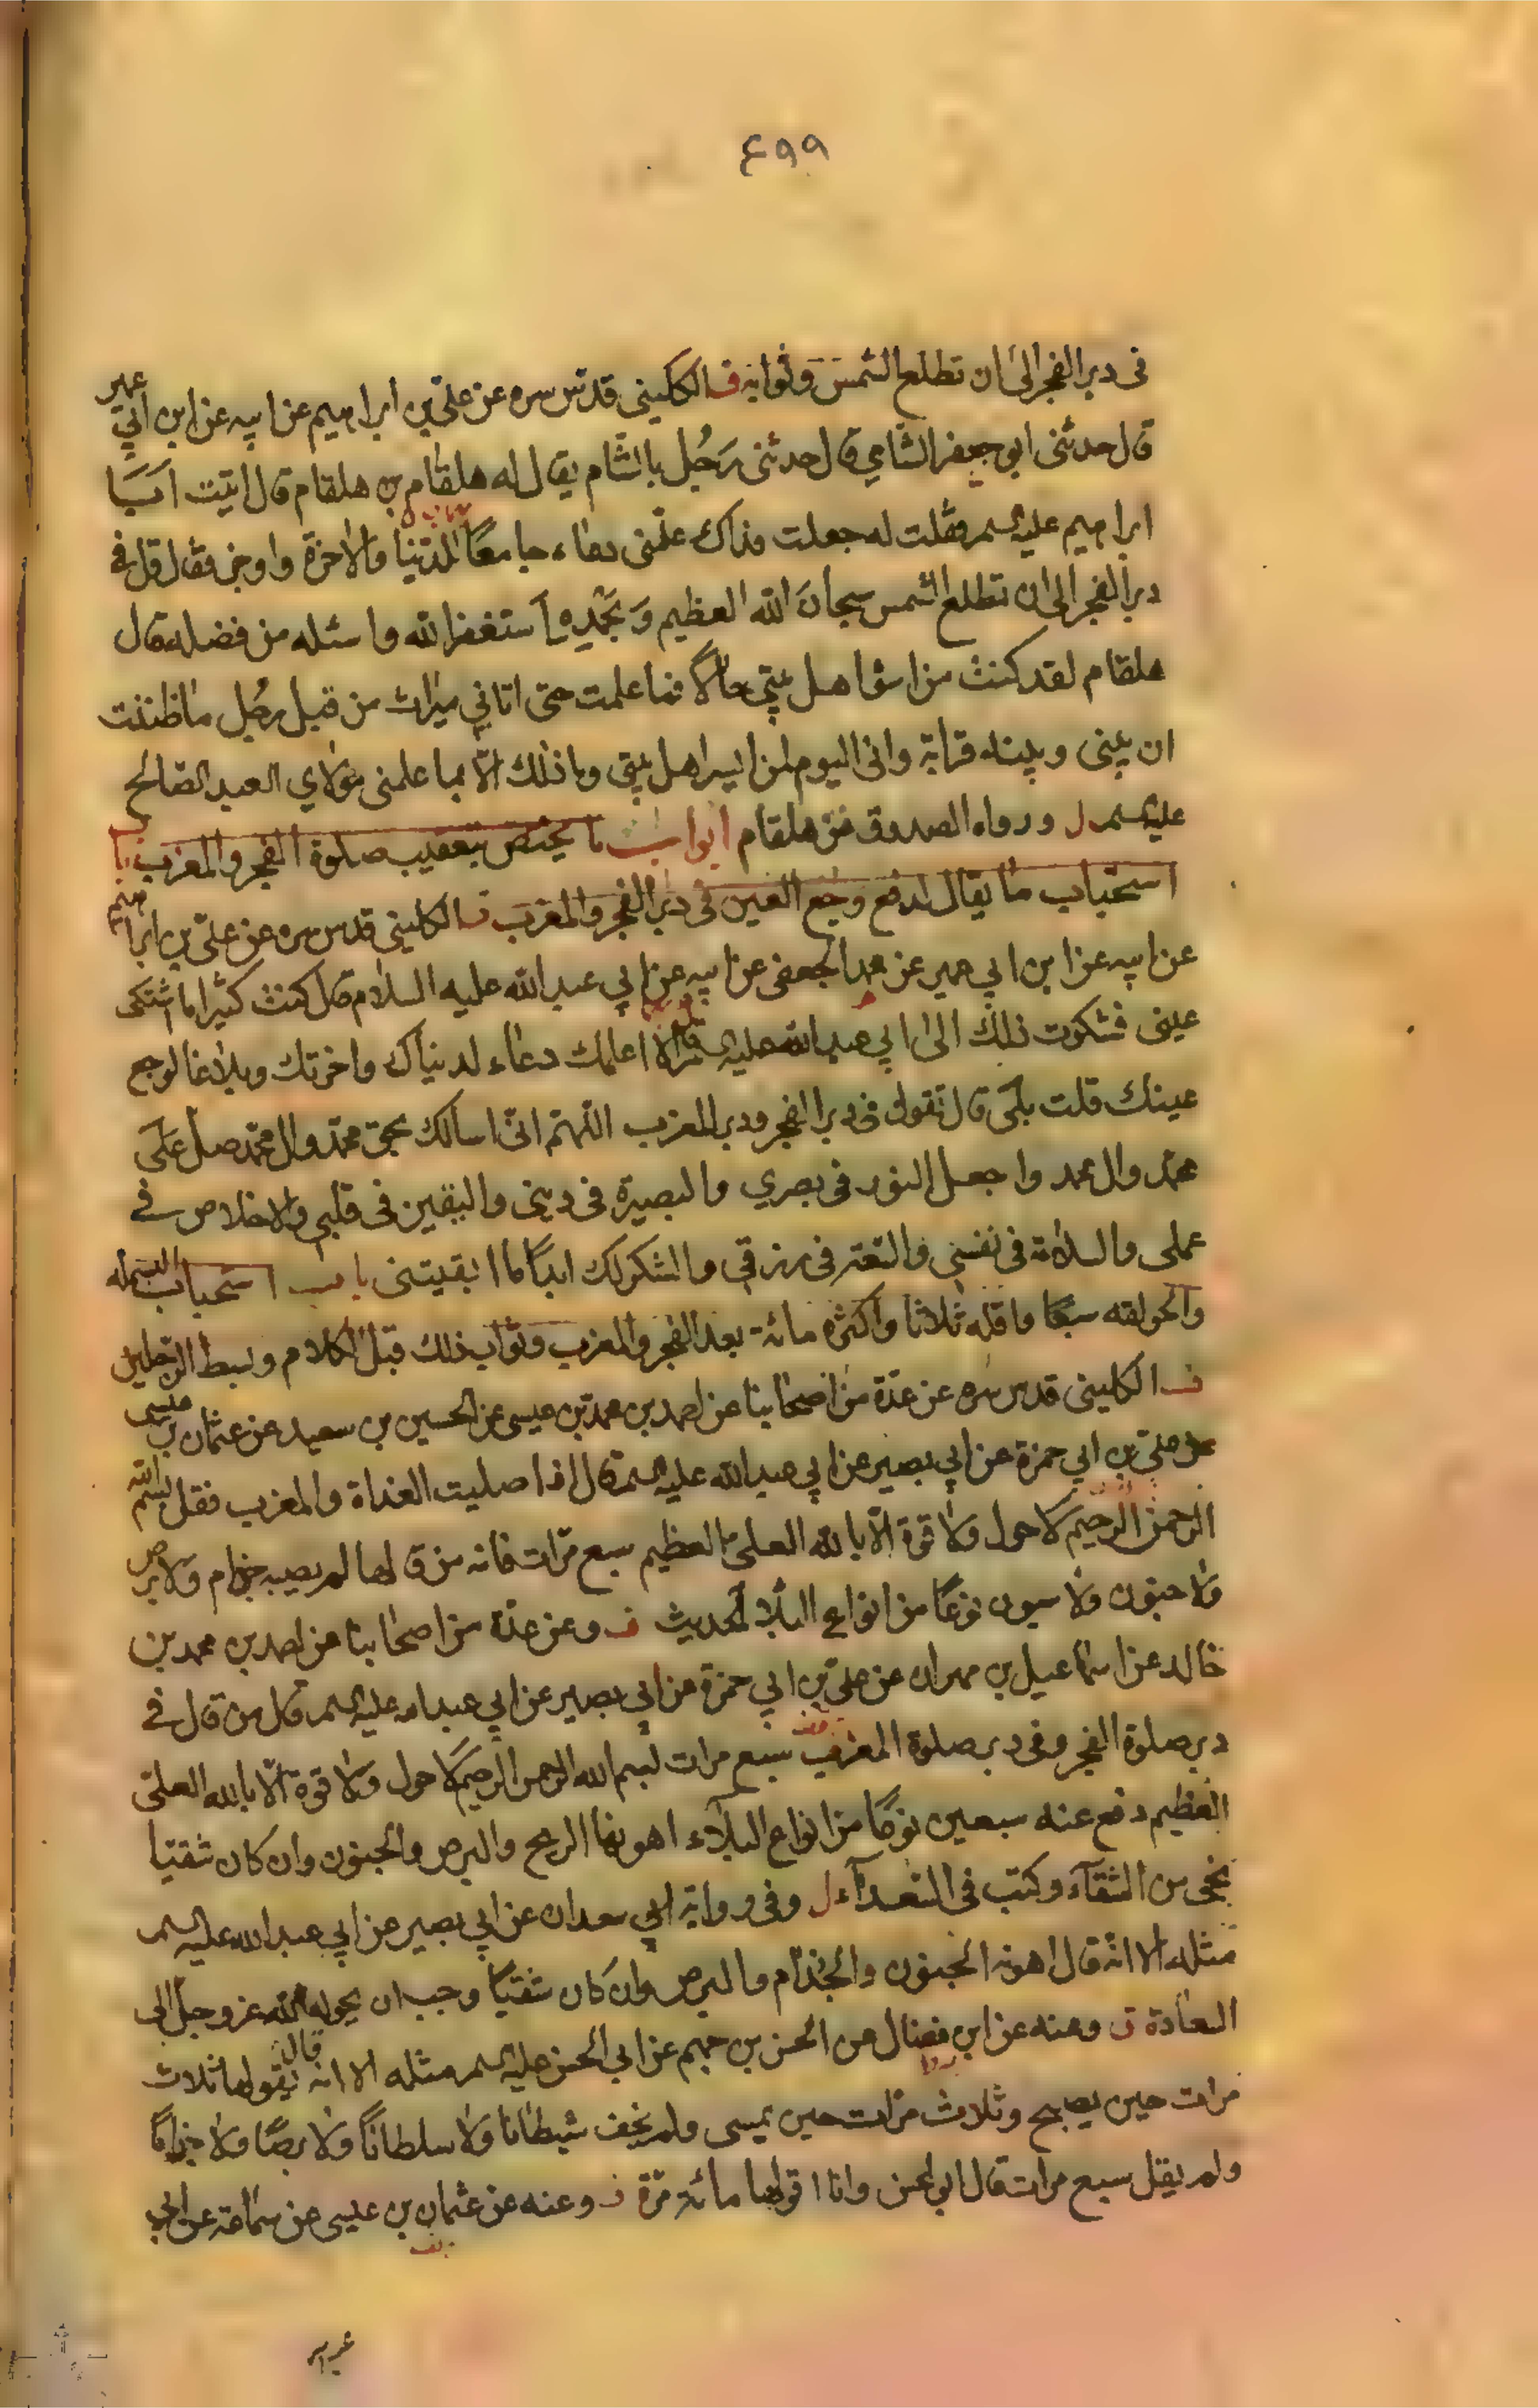 ٤٩٩
في دبر الفجر الى ان تطلع الشمس وثوابه ف الكليني قدس سره عن علي بن ابراهيم عن ابيه عن ابن ابي عمير
قال حدثني ابو جعفر الشامي قال حدثني رجل بالشام يقال له هلقام بن هلقام قال اتيت ابا
ابراهيم عليه السلم فقلت له جعلت فداك علمني دعاء جامعا للدنيا والاخرة واوجز فقال قل في
دبر الفجر الى ان تطلع الشمس سبحان الله العظيم وبحمده استغفر الله واسئله من فضله قال
هلقام لقد كنت من اسوء اهل بيتي حالا فما علمت حتى اتاني ميراث من قبل رجل ما ظننت
ان بيني وبينه قرابة واني اليوم لمن ايسر اهل بيتي وما ذلك الا بما علمني مولاي العبد الصالح
عليه السلم ل ورواه الصدوق عن هلقام ابواب ما يختص بتعقيب صلوة الفجر والمغرب باب
استحباب ما يقال لدفع وجع العين في دبر الفجر والمغرب ف الكليني قدس سره عن علي بن ابراهيم
عن ابيه عن ابن ابي عمير عن محمد الجعفي عن ابيه عن ابي عبد الله عليه السلام قال كنت كثيرا ما اشتكى
عيني فشكوت ذلك الى ابي عبد الله عليه السلم قال الا اعلمك دعاء لدنياك واخرتك وبلاغا لوجع
عينك قلت بلى قال تقول في دبر الفجر ودبر المغرب اللهم اني اسالك بحق محمد وال محمد صل على
محمد وال محمد واجعل النور في بصري والبصيرة في ديني واليقين في قلبي والاخلاص في
عملي والسلامة في نفسي والسعة في رزقي والشكر لك ابدا ما ابقيتني باب استحباب البسملة
والحولقه سبعا واقله ثلاثا واكثره مائة بعد الفجر والمغرب وثواب ذلك قبل الكلام وبسط الرجلين
ف الكليني قدس سره عن عدة من اصحابنا عن احمد بن محمد بن عيسى عن الحسين بن سعيد عن عثمان بن عيسى
عن علي بن ابي حمزة عن ابي بصير عن ابي عبد الله عليه السلم قال اذا صليت الغداة والمغرب فقل بسم الله
الرحمن الرحيم لا حول ولا قوة الا بالله العلي العظيم سبع مرات فانه من قالها لم يصبه جذام ولا برص
ولا جنون ولا سبعون نوعا من انواع البلاء الحديث ف وعن عدة من اصحابنا عن احمد بن محمد بن
خالد عن اسماعيل بن مهران عن علي بن ابي حمزة عن ابي بصير عن ابي عبد الله عليه السلم قال من قال في
دبر صلوة الفجر وفي دبر صلوة المغرب سبع مرات بسم الله الرحمن الرحيم لا حول ولا قوة الا بالله العلي
العظيم دفع عنه سبعين نوعا من انواع البلاء اهونها الريح والبرص والجنون وان كان شقيا
محي من الشقاء وكتب في السعداء ل وفي رواية ابي سعدان عن ابي بصير عن ابي عبد الله عليه السلم
مثله الا انه قال اهونه الجنون والجذام والبرص وان كان شقيا وجب ان يحوله الله عز وجل الى
السعادة ف وعنه عن ابن فضال عن الحسن بن جهم عن ابي الحسن عليه السلم مثله الا انه قال يقولها ثلاث
مرات حين يصبح وثلاث مرات حين يمسي ولم يخف شيطانا ولا سلطانا ولا برصا ولا جذاما
ولم يقل سبع مرات قال ابو الحسن وانا اقولها مائة مرة ف وعنه عن عثمان بن عيسى عن سماعة عن ابي